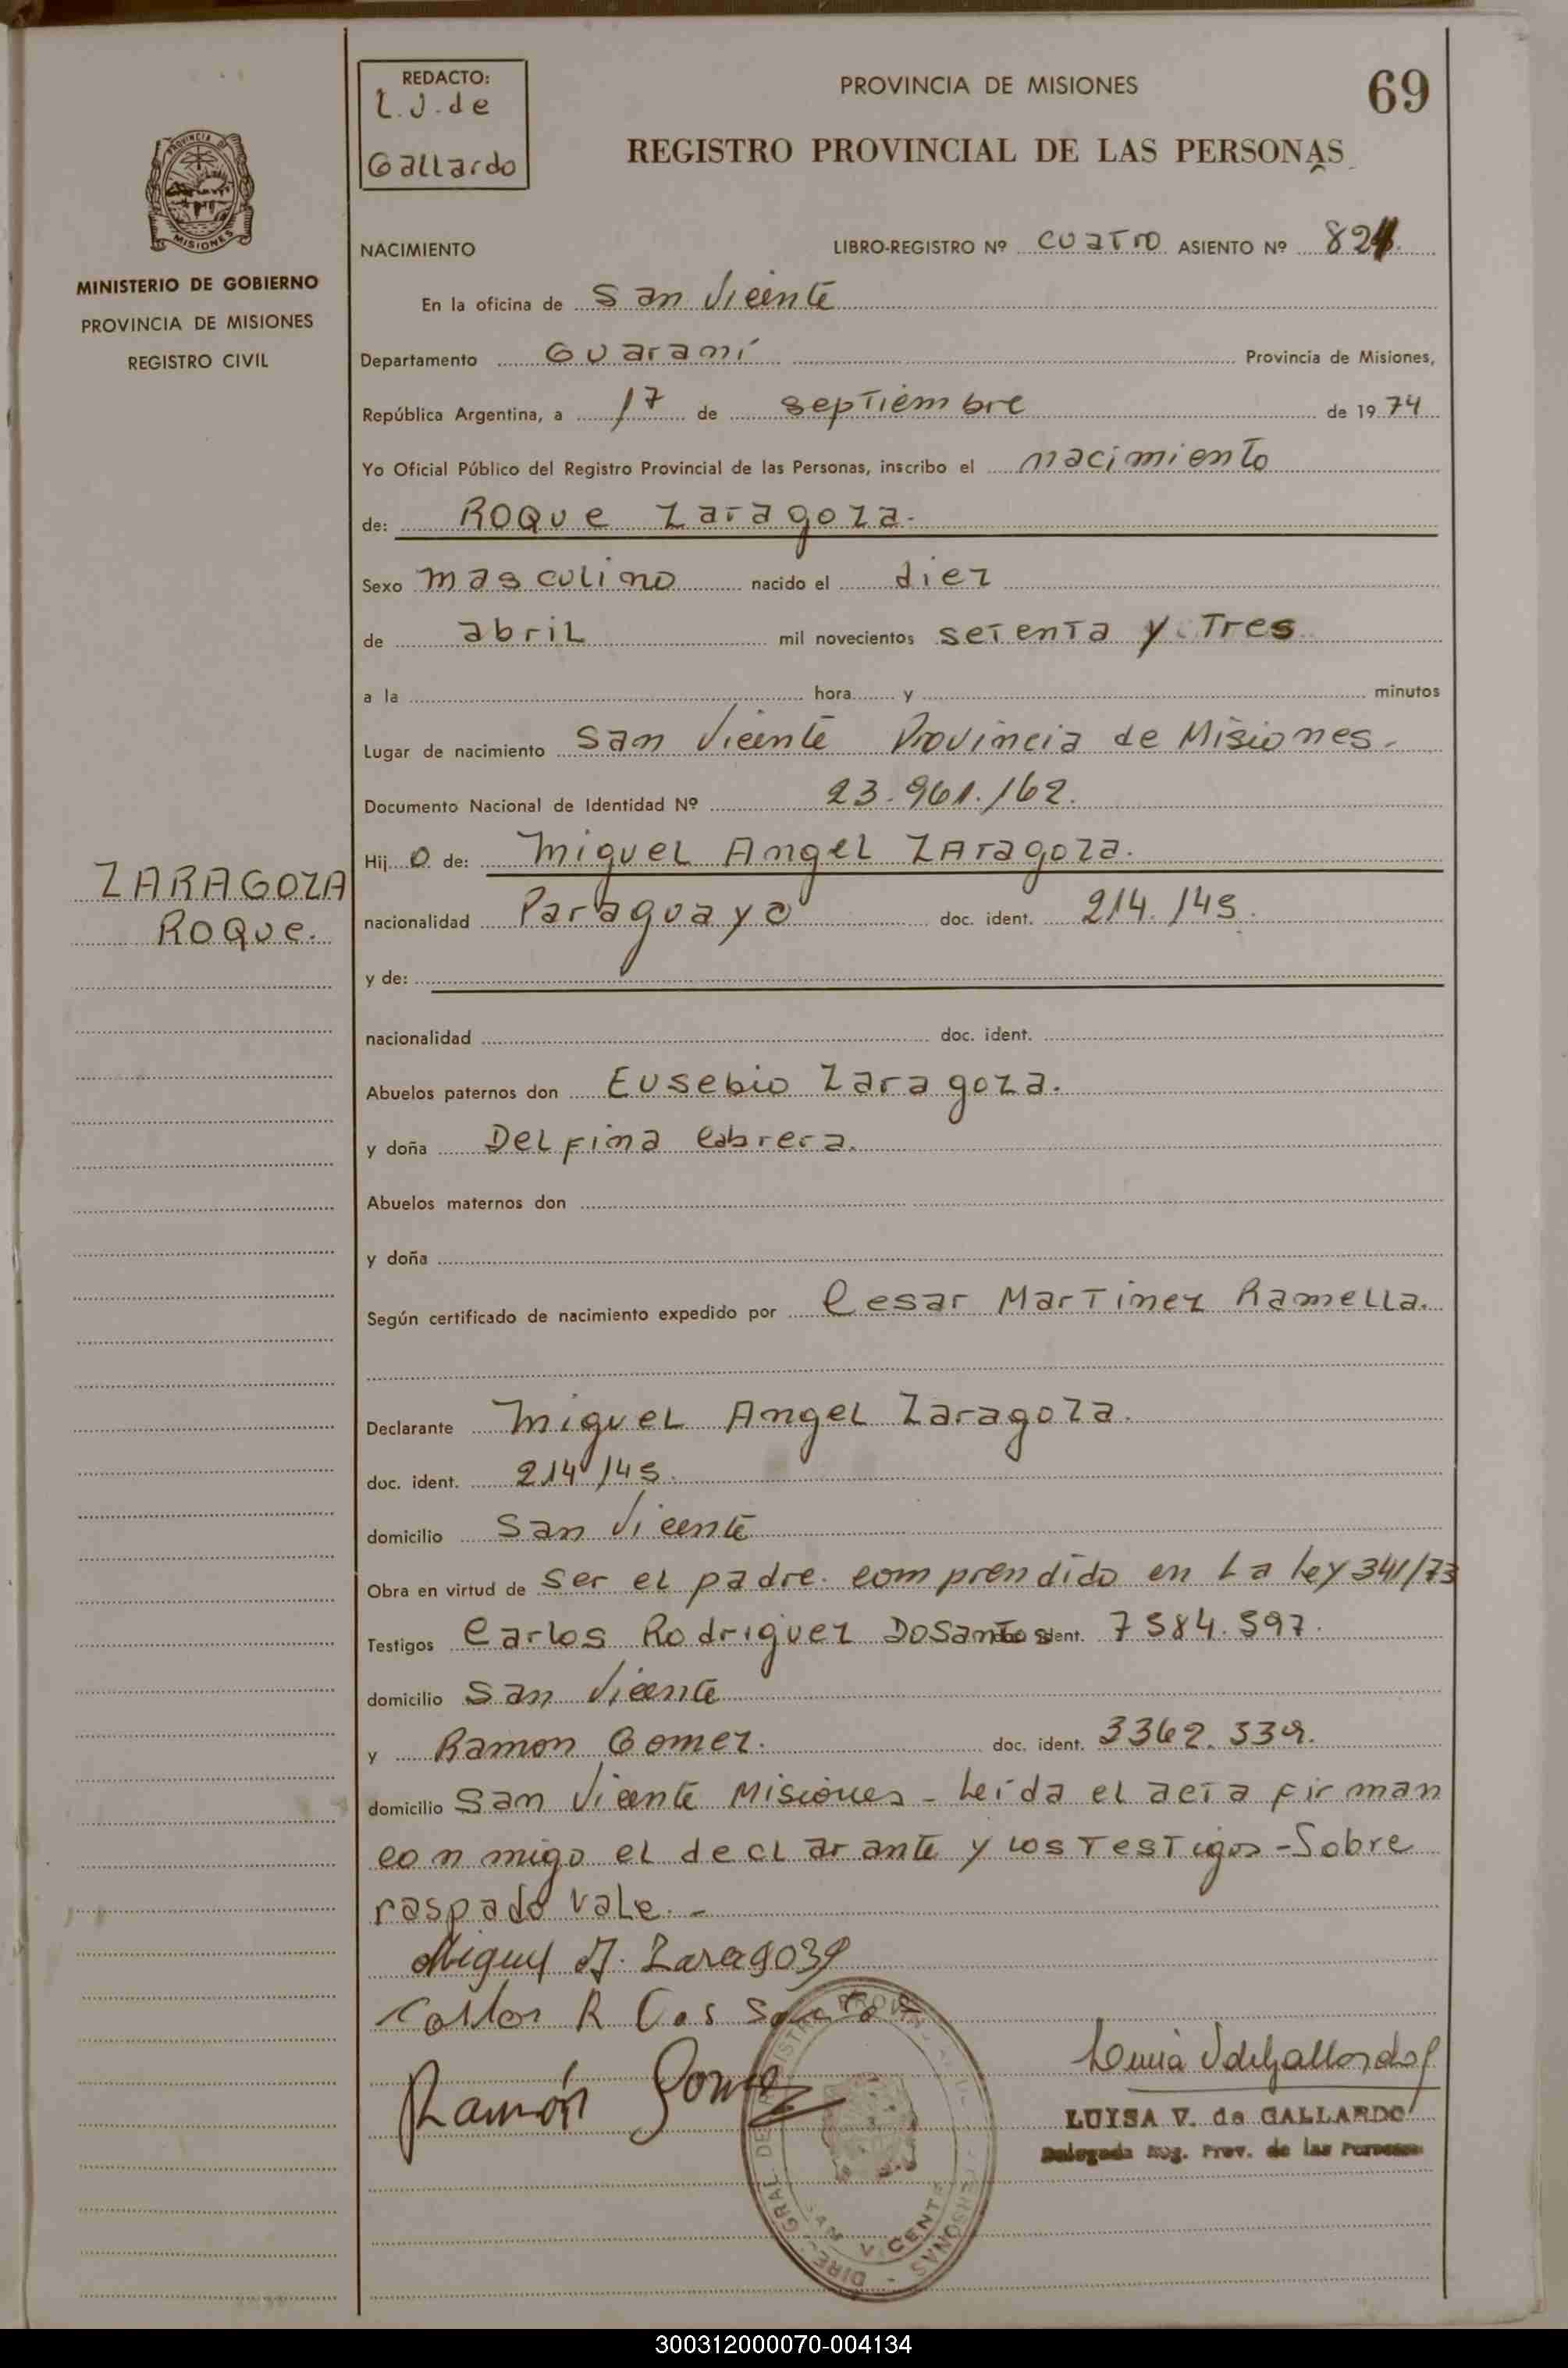 REDACTO:
L.J.de
Gallardo
PROVINCIA DE MISIONES
69
REGISTRO PROVINCIAL DE LAS PERSONAS
PROVINCIA
MISIONES
MINISTERIO DE GOBIERNO
PROVINCIA DE MISIONES
REGISTRO CIVIL
NACIMIENTO LIBRO-REGISTRO Nº cuatro ASIENTO Nº 821.
En la oficina de San Vicente
Departamento Guaraní Provincia de Misiones,
República Argentina, a 17 de septiembre de 1974
Yo Oficial Público del Registro Provincial de las Personas, inscribo el nacimiento
de: Roque Zaragoza.
Sexo masculino nacido el diez
de abril mil novecientos setenta y Tres
a la hora y minutos
Lugar de nacimiento San Vicente Provincia de Misiones.
Documento Nacional de Identidad Nº 23.961.162.
Hij o de: Miguel Angel Zaragoza.
ZARAGOZA
Roque.
nacionalidad Paraguayo doc. ident. 214.145.
y de:
nacionalidad doc. ident.
Abuelos paternos don Eusebio Zaragoza.
y doña Delfina Cabrera.
Abuelos maternos don
y doña
Según certificado de nacimiento expedido por Cesar Martinez Ramella.
Declarante Miguel Angel Zaragoza.
doc. ident. 214145.
domicilio San Vicente
Obra en virtud de ser el padre. comprendido en La ley 341/73
Testigos Carlos Rodriguez DoSantos doc. ident. 7584.597.
domicilio San Vicente
y Ramon Gomez. doc. ident. 3362.339.
domicilio San Vicente Misiones - Leída el acta firman
conmigo el declarante y los Testigos - Sobre
raspado vale. -
Miguel A. Zaragoza
Carlos R Dos Santos
Ramón Gomez
LUISA V. de GALLARDO
Delegada Reg. Prov. de las Personas
SAN VICENTE
300312000070-004134